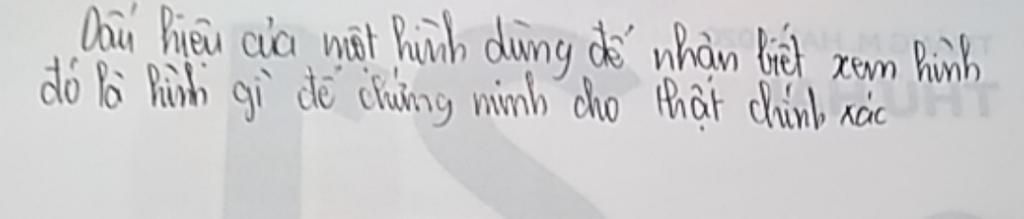 Dấu hiệu của một hình dùng để nhận biết xem hình
đó là hình gì để chứng minh cho thật chính xác